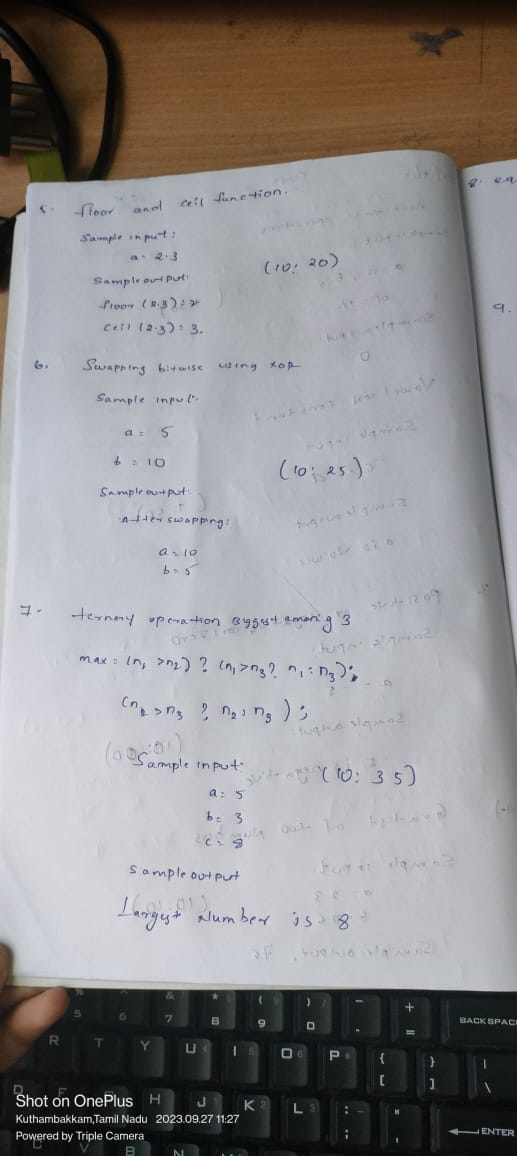 5. floor and ceil function.
Sample input:
a = 2.3
(10: 20)
Sample output:
floor (2.3) = 2
Ceil (2.3) = 3.
6. Swapping bitwise using xor
Sample input:
a = 5
b = 10
(10: 25)
Sample output:
After swapping:
a = 10
b = 5
7. ternary operation Biggest among 3
max = (n1 > n2) ? (n1 > n3 ? n1 : n3) :
(n2 > n3 ? n2 : n3 ) ;
Sample input:
(10: 35)
a = 5
b = 3
c = 8
Sample output
Largest Number is 8
8.
9.
BACKSPAC
ENTER
Shot on OnePlus
Kuthambakkam,Tamil Nadu 2023.09.27 11:27
Powered by Triple Camera